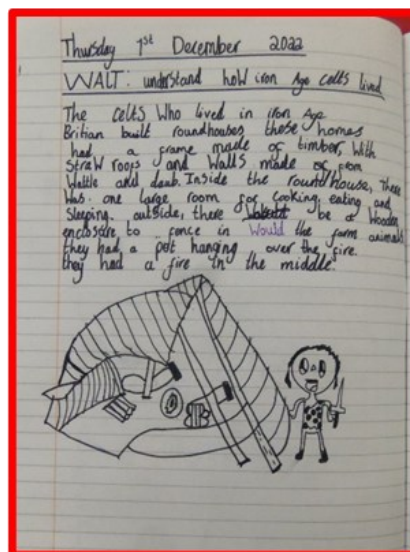 Thursday 1st December 2022
WALT: understand how iron Age celts lived
The celts who lived in iron Age
Britian built roundhouses these homes
had a frame made of timber, with
straw roofs and walls made of from
Wattle and daub. Inside the roundhouse, there
was one large room for cooking, eating and
sleeping. outside, there be a wooden
enclosure to fence in Would the farm animals
they had a pot hanging over the fire.
they had a fire in the middle.